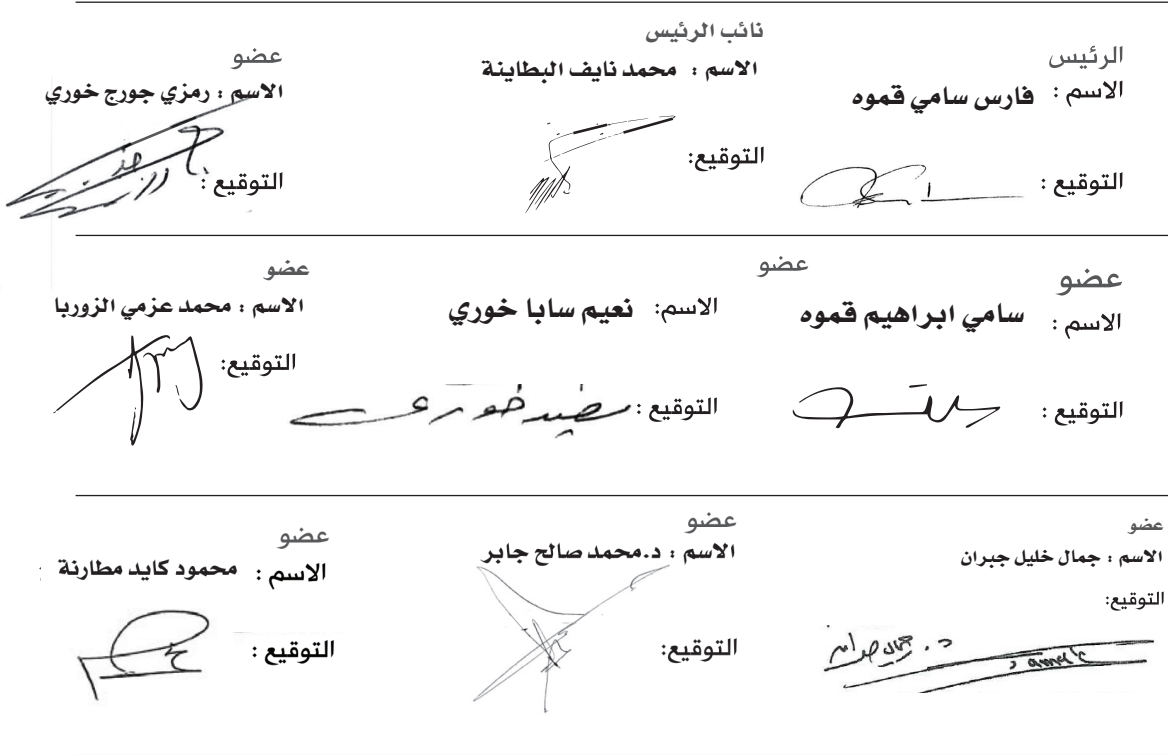 الرئيس
الاسم : فارس سامي قموه
التوقيع :
نائب الرئيس
الاسم : محمد نايف البطاينة
التوقيع:
عضو
الاسم : رمزي جورج خوري
التوقيع :
عضو
الاسم : سامي ابراهيم قموه
التوقيع :
عضو
الاسم: نعيم سابا خوري
التوقيع :
عضو
الاسم : محمد عزمي الزوربا
التوقيع:
عضو
الاسم : جمال خليل جبران
التوقيع:
عضو
الاسم : د.محمد صالح جابر
التوقيع:
عضو
الاسم : محمود كايد مطارنة
التوقيع :